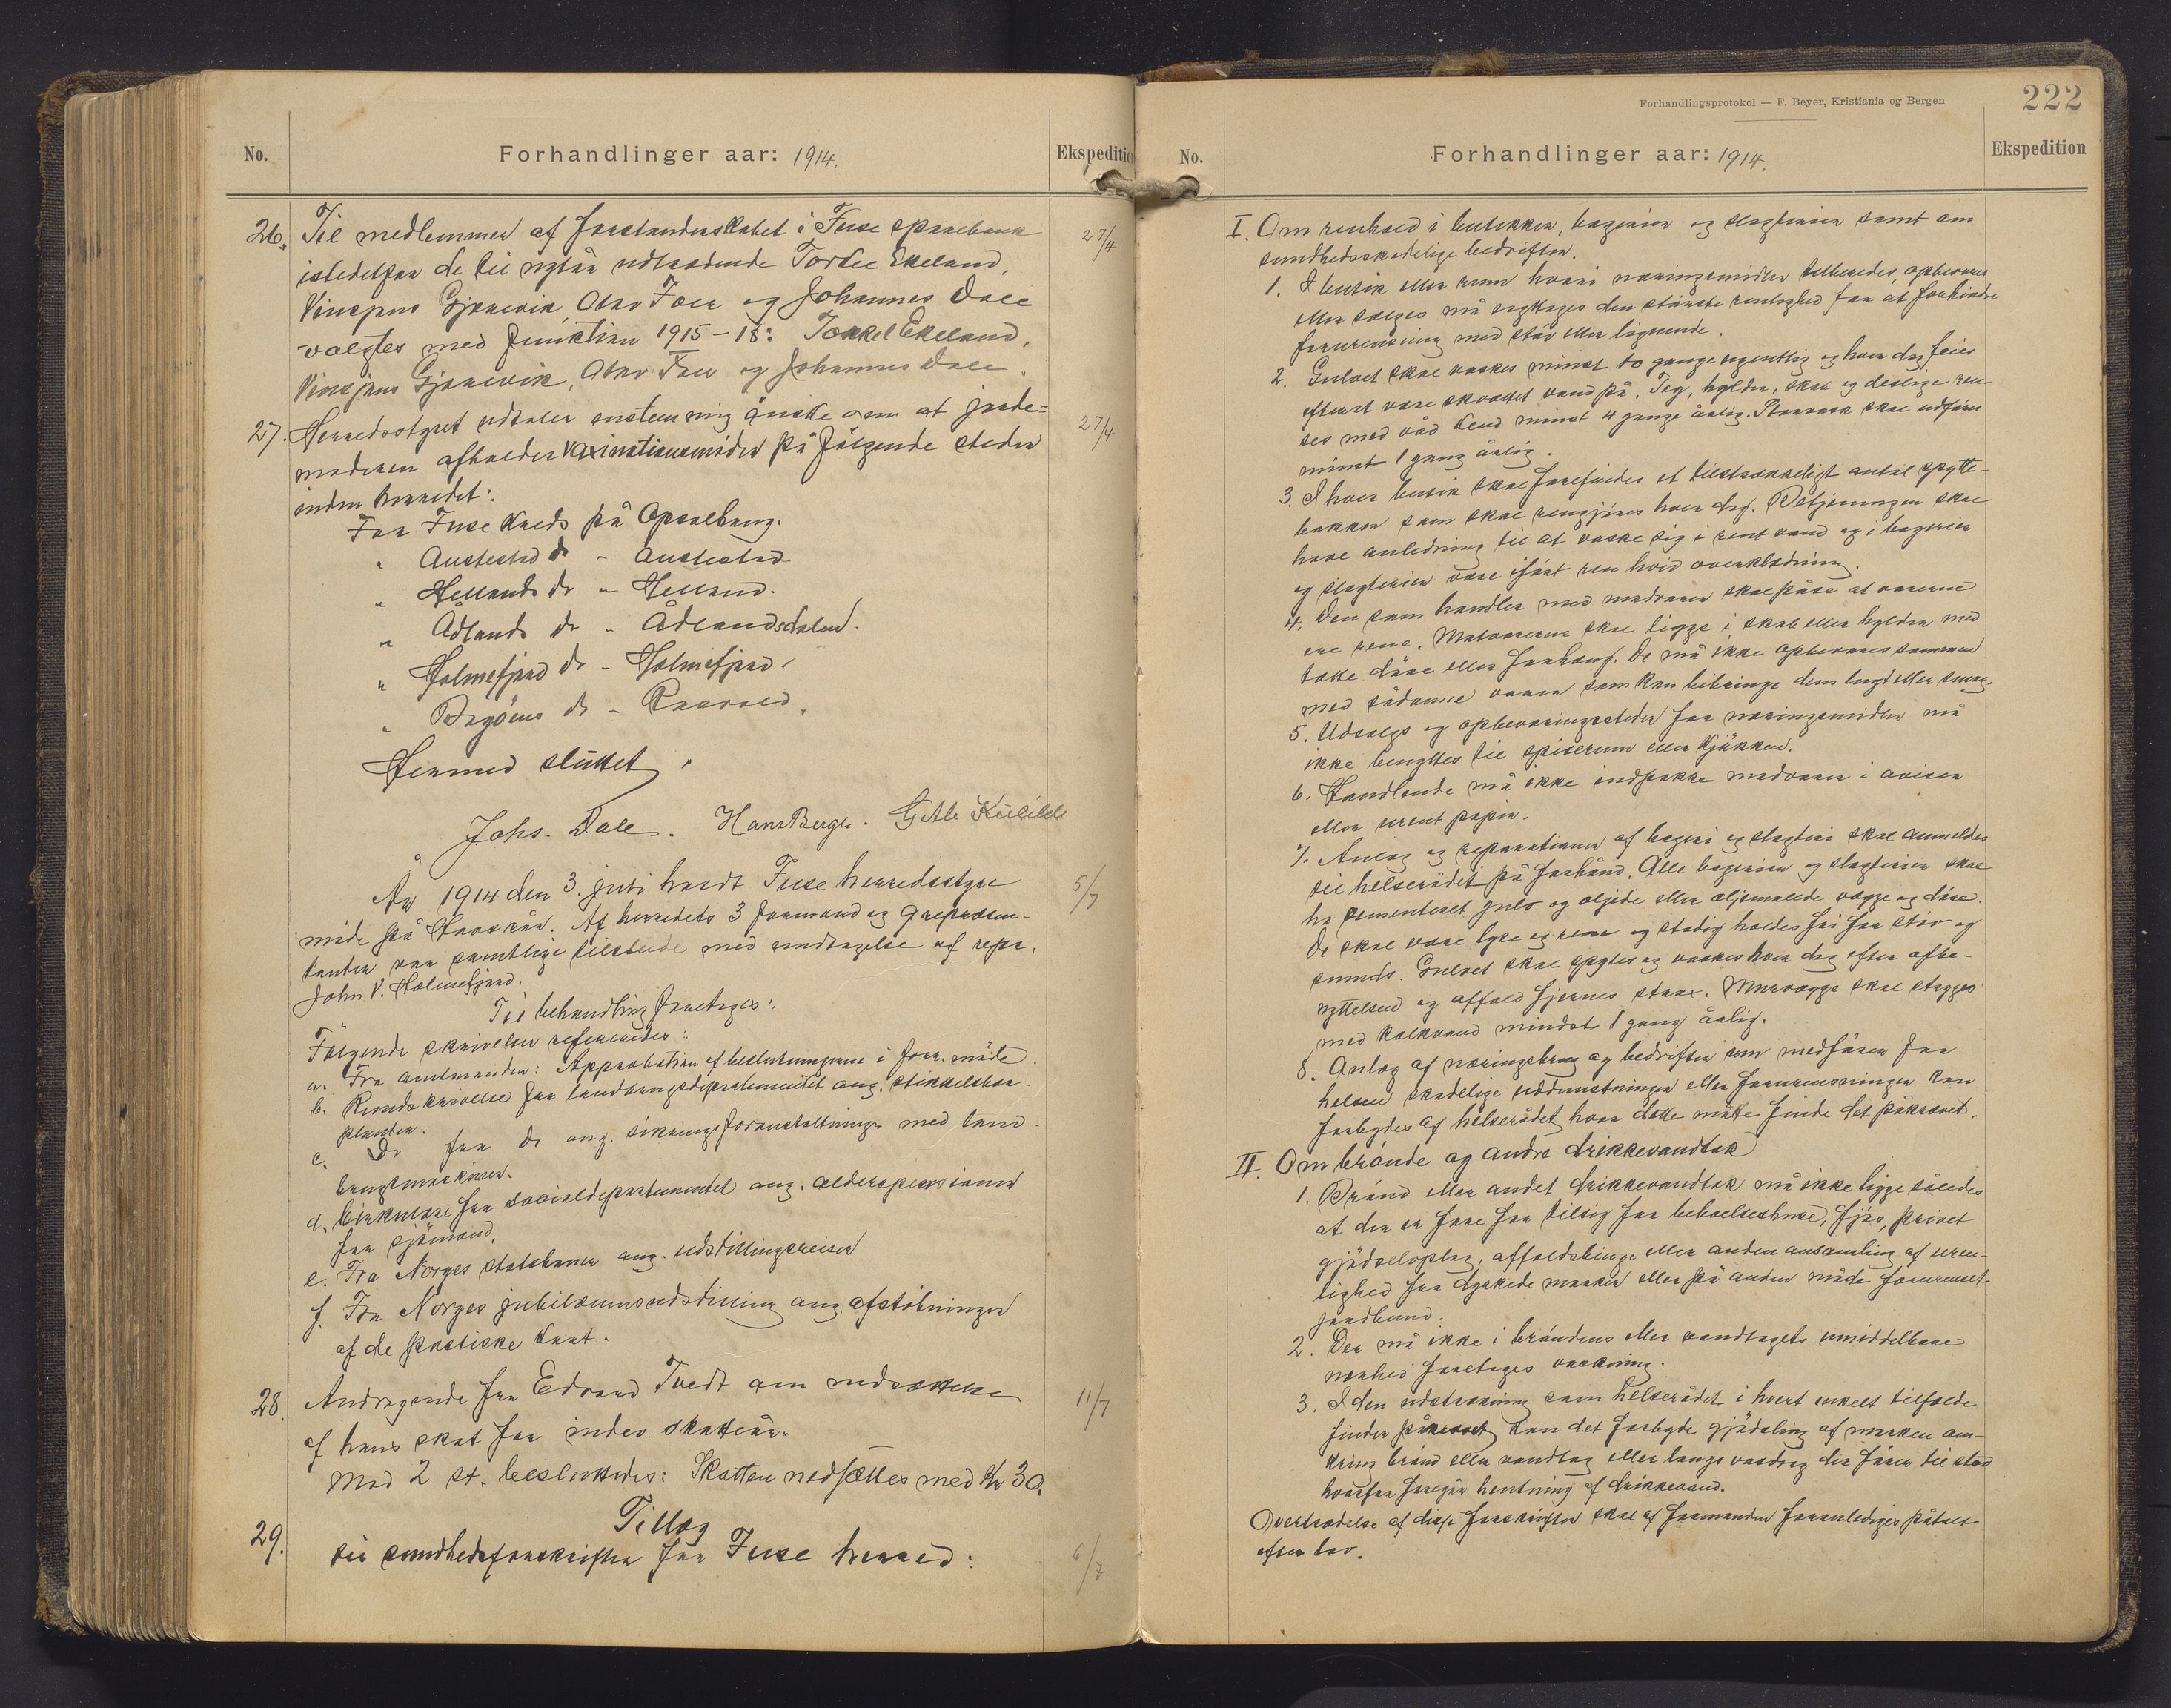 No.
Forhandlinger aar: 1914.
Ekspedition
26. Til medlemmer af forstanderskabet i Fuse sparebank 27/4
istedetfor de til nytår udtrædende Torkel Ekeland,
Vinsjans Gjønevik, Olav Tveit og Johannes Dale
valgtes med funktion 1915-18: Torkel Ekeland,
Vinsjans Gjønevik, Olav og Johannes Dale.
27. Herredsstyret udtaler enstemmig ønske om at jorde- 27/4
moderen afholder vaxinationsmøder på følgende steder
inden herredet:
For Fuse kreds på Opsalhaug.
" Austestad do - Austestad
" Hellands do - Helland.
" Ådlands do - Ådlandsdalen.
" Holmefjord do - Holmefjord.
" do -
Hermed sluttet.
Johs. Dale. Hans Berge. Gitle
År 1914 den 3. juli holdt Fuse herredsstyre 5/7
møde på Havskår. Af herredets 3 formænd og 9 repræsen-
tanter var samtlige tilstede med undtagelse af repr.
John V. Holmefjord.
Til behandling foretages:
Følgende skrivelser refereredes:
a. Fra amtmanden: Approbation af beslutningerne i forr. møde.
b. Rundskrivelse fra landbrugsdepartementet ang. stikkelsbær-
planter.
c. Do fra do ang. sikringsforanstaltninger med land-
brugsmaskiner.
d. Cirkulære fra socialdepartementet ang. alderspensioner
for sjømænd.
e. Fra Norges statsbaner ang. udstillingsreiser
f. Fra Norges jubilæumsudstilling ang. afstøbninger
af de plastiske kart.
28. Andragende fra Edvard Tvedt om nedsættelse 11/7
af hans skat for indev. skatteår.
Mod 2 st. besluttedes: Skatten nedsættes med Kr 30.
29. Tillæg
til sundhedsforskrifter for Fuse herred: 6/7
Forhandlingsprotokol — F. Beyer, Kristiania og Bergen
222
No.
Forhandlinger aar: 1914.
Ekspedition
I. Om renhold i butikker, bagerier og slagterier samt om
sundhedsskadelige bedrifter.
1. I butik eller rum hvori næringsmidler tilberedes, opbevares
eller sælges må iagttages den største renlighed for at forhindre
forurensning med støv eller lignende.
2. Gulvet skal vaskes mindst to gange ugentlig og hver dag feies
efterat være skvættet vand på. Tag, hylder, skal og deslige ren-
ses med våd klud minst 4 gange årlig. Storvask skal udføres
minst 1 gang årlig.
3. I hver butik skal forefindes et tilstrækkeligt antal spytte-
bakker som skal rengjøres hver dag. Betjeningen skal
have anledning til at vaske sig i rent vand og i bagerier
og slagterier være iført ren hvid overklædning.
4. Den som handler med madvarer skal påse at varerne
ere rene. Matvarerne skal ligge i skab eller hylder med
tætte døre eller forhæng. De må ikke opbevares sammen
med sådanne varer som kan bibringe dem lugt eller smag.
5. Udsalgs og opbevaringssteder for næringsmidler må
ikke benyttes til spiserum eller kjøkken.
6. Handlende må ikke indpakke madvarer i aviser
eller urent papir.
7. Anlæg og reparationer af bageri og slagteri skal anmeldes
til helserådet på forhånd. Alle bagerier og slagterier skal
ha sementeret gulv og oljede eller oljemalede vægge og døre.
De skal være lyse og rene og stadig holdes fri for støv og
smuds. Gulvet skal spyles og vaskes hver dag efter afbe-
nyttelsen og affald fjernes strax. Murvægge skal
med kalkvand mindst 1 gang årlig.
8. Anlæg af næringsbrug og bedrifter som medfører for
helsen skadelige uddunstninger eller forurensninger kan
forbydes af helserådet hvor dette måtte finde det påkrævet.
II. Om brønde og andre drikkevandtak
1. Brønd eller andet drikkevandtak må ikke ligge således
at der er fare for tilsig fra beboelseshuse, fjøs, privet
gjødseloplag, affaldsbinge eller anden ansamling af uren-
lighed fra dyrkede marker eller på anden måde forurenset
jordbund.
2. Der må ikke i brøndens eller vandtagets umiddelbare
nærhed foretages vaskning.
3. I den udstrækning som helserådet i hvert enkelt tilfælde
finder påkrævet kan det forbyde gjødsling af marken om-
kring brønd eller vandtag eller langs vasdrag der fører til sted
hvorfra foregår hentning af drikkevand.
Overtrædelse af disse forskrifter skal af formanden foranlediges påtalt
efter lov.